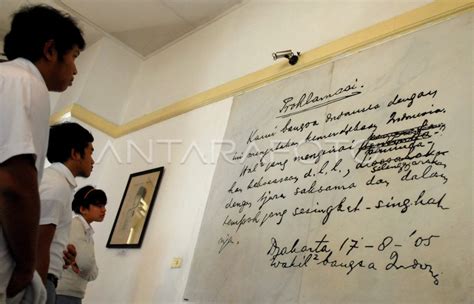 Proklamasi.
Kami bangsa Indonesia dengan
ini menjatakan kemerdekaan Indonesia.
Hal² jang mengenai
kekoeasaan d.l.l.,
dengan tjara saksama dan dalam
tempoh jang sesingkat-singkat
nja.
Djakarta, 17-8-'05
Wakil² bangsa Indon
ANTARA